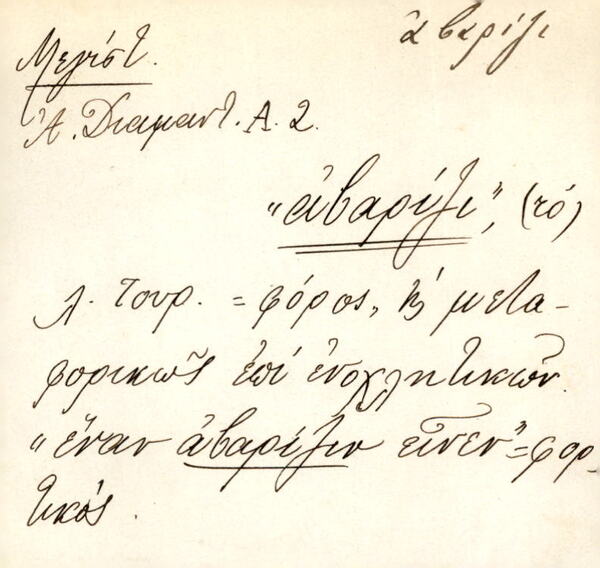 ἀβαρίζι
Μεγίστ.
Ἀ. Διαμαντ. Α. 2.
"ἀβαρίζι", (τό)
λ. τουρ. = φόρος, καί μετα-
φορικῶς ἐπί ἐνοχλητικῶν.
"ἕναν ἀβαρίζιν εἶνεν" = φορ-
τικός.